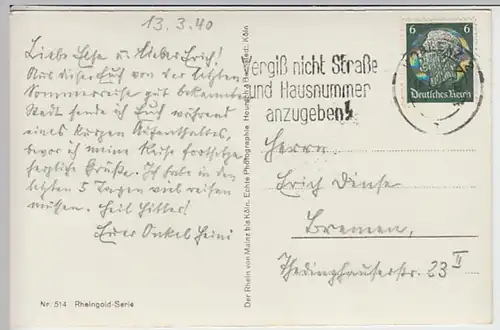 13.3.40
Liebe Else u. lieber Erich!
Aus dieser Euch von der letzten
Sommerreise gut bekannten
Stadt sende ich Euch während
eines kurzen Aufenthaltes,
bevor ich meine Reise fortsetze
herzliche Grüße. Ich habe in den
letzten 5 Tagen viel reisen
müssen. Heil Hitler!
Euer Onkel Heini
Nr. 514 Rheingold-Serie
Der Rhein von Mainz bis Köln. Echte Photographie Köln
Vergiß nicht Straße
und Hausnummer
anzugeben!
6 6
Deutsches Reich
Herrn
Erich
Bremen,
Thedinghauserstr. 23 II